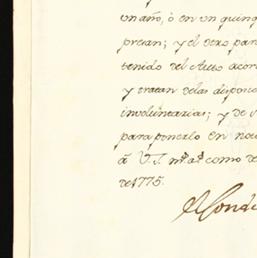 un año, ò en un quinq
presan; y el dexo par
tenido del Auto acor
y tratan delas disposic
involuntarias; y de v
para ponerlo en not
à V. I. mᵒˢ aˢ como de
de 1775.
El Conde